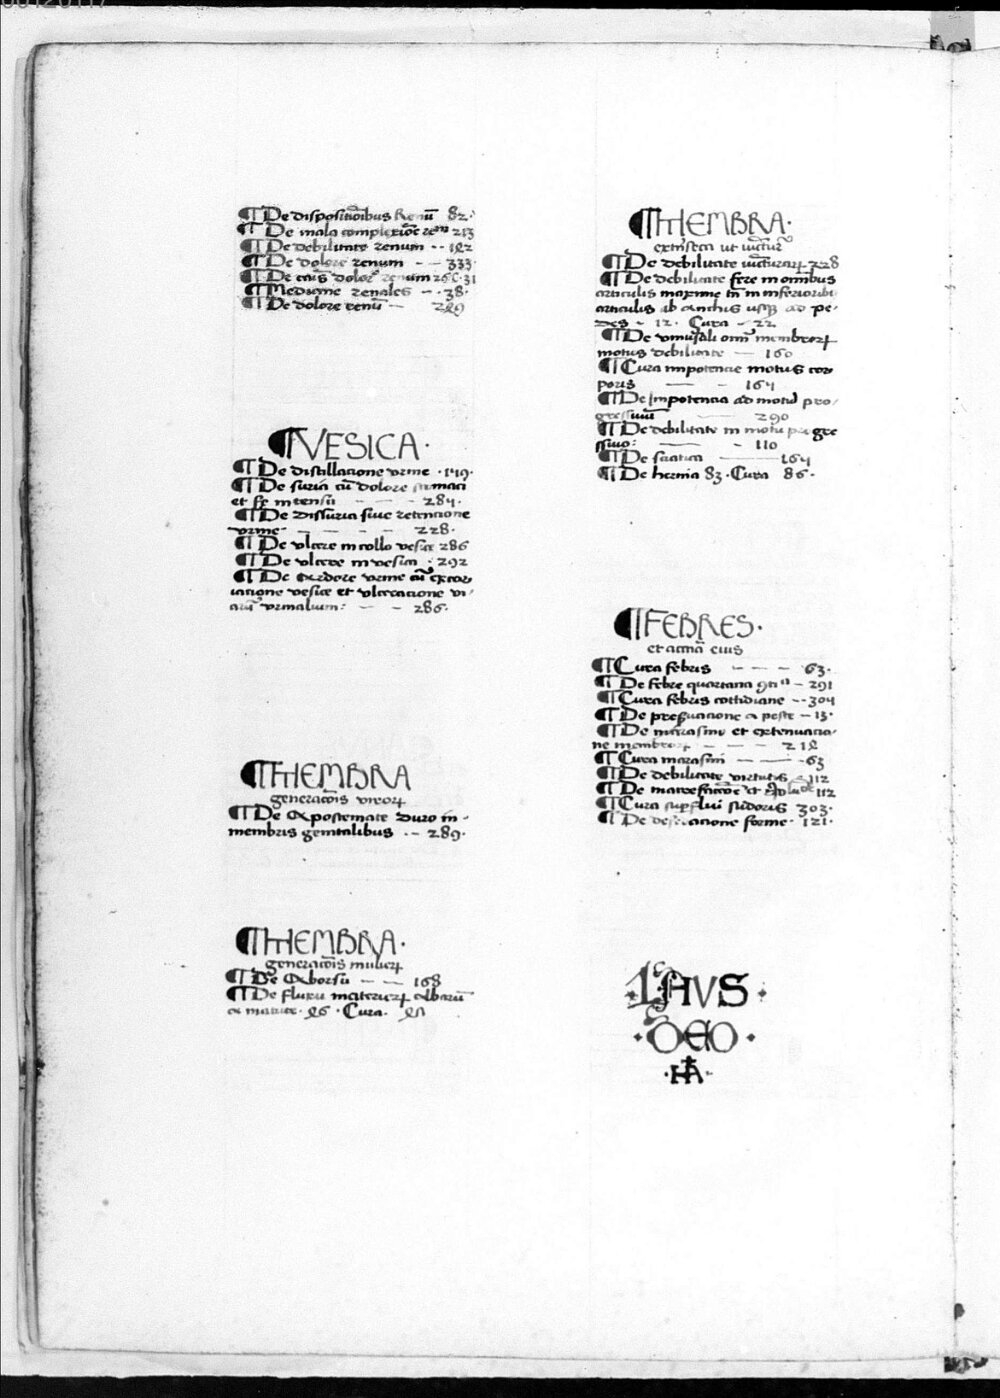 ¶ De dispositiōibus Renū 82·
¶ De mala complexiōe reᵐ 213
¶ De debilitate renum -- 182
¶ De dolore renum - - 333·
¶ De caīs dolor renum 266·31
¶ Medicine renales - - 38·
¶ De dolore renū - - 289
¶ VESICA·
¶ De distillacione vrine · 149·
¶ De suria cū dolore stomaci
et intensū - - - 284·
¶ De dissuria siue retencione
vrine - - - - 228·
¶ De vlcere in collo vesice 286
¶ De vlcere in vesica · 292
¶ De Ardore vrine cū excor
iacione vesice et vlceracione vi
arū vrinalium: - - 286·
¶ MEMBRA
generacōis viroꝝ
¶ De Apostemate duro in
membris genitalibus -- 289·
¶ MEMBRA·
generacōis mulieꝝ
¶ De Aborsu - - - 168
¶ De fluxu materiaꝝ albarū
a matrice · 86 · Cura·
¶ MEMBRA·
extrīseca ut iūcturē
¶ De debilitate iūcturaꝝ 228
¶ De debilitate fere in omnibus
articulis maxime tn̄ in inferiorib;
articulis ab anchis usqꝫ ad pe-
des - 12· Cura - 22
¶ De vniusali om̄i membroꝝ
motus debilitate — 160
¶ Cura impotencie motus cor
poris — — 164
¶ De impotencia ad motū pro-
gressiuū — 290
¶ De debilitate in motu progre
ssiuo: — - 110
¶ De sciatica — 164
¶ De hernia 83· Cura 86·
¶ FEBRES·
et accn̄a eius
¶ Cura febris - - - 63·
¶ De febre quartana 9tiᵃ - 291
¶ Cura febris cottidiane -- 304
¶ De preseruacione a peste - 13·
¶ De marasimo et extenuacio-
ne membroꝝ - - - 218
¶ Cura marasimi - — - 63
¶ De debilitate virtutis - 112
¶ De marcefactōe et 112
¶ Cura supflui sudoris 303·
¶ De desiccacione forme· 121·
·LAVS·
·DEO·